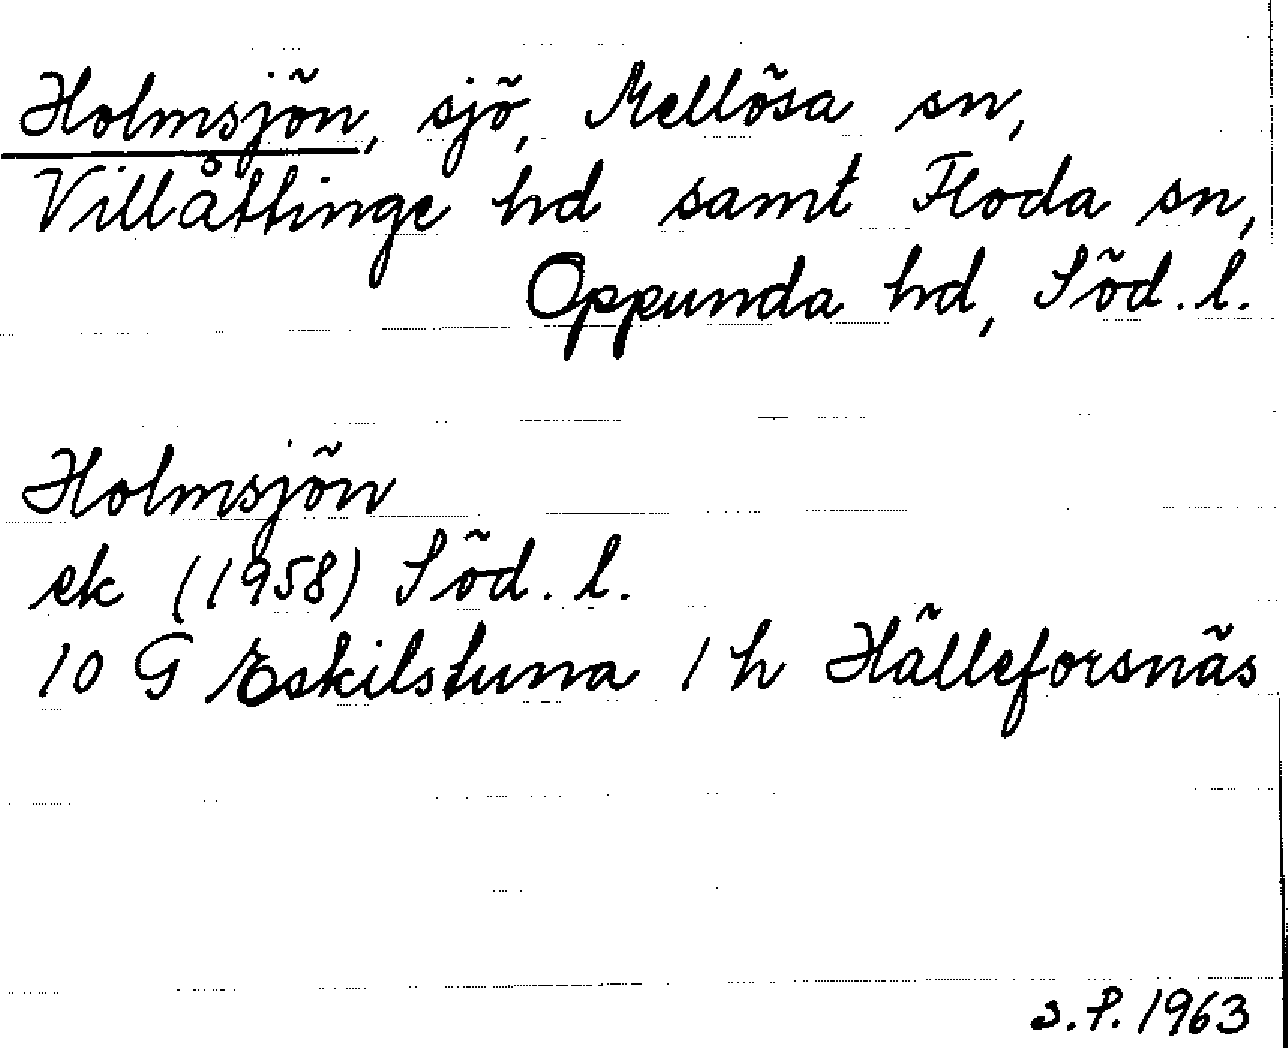 Holmsjön, sjö, Mellösa sn,
Villåttinge hd samt Floda sn,
Oppunda hd, Söd. l.
Holmsjön
ek (1958) Söd. l.
10 G Eskilstuna 1 h Hälleforsnäs
s.P. 1963